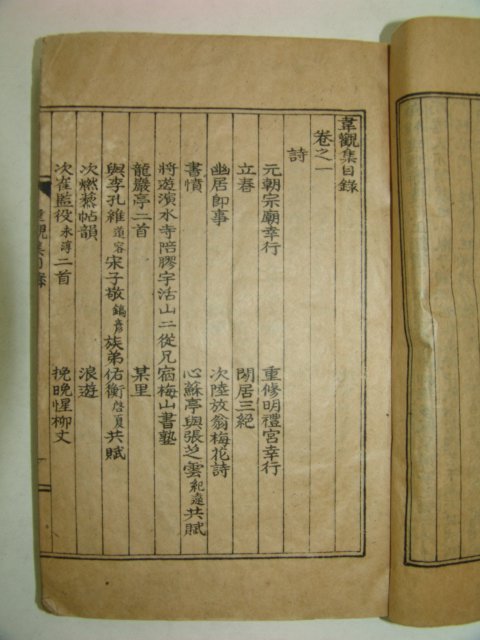 韋觀集目錄
卷之一
詩
元朝宗廟幸行 重修明禮宮幸行
立春 閒居三絶
幽居即事 次陸放翁梅花詩
書憤 心蘇亭與張芝雲紀遠共賦
將遊演水寺陪膠宇活山二從兄宿梅山書塾
龍巖亭二首 某里
與李孔維道容宋子敬鎬彦族弟佑衡啓夏共賦
次燃藜帖韻 浪遊
次崔監役永溥二首 挽晩惺柳丈
韋觀集目錄